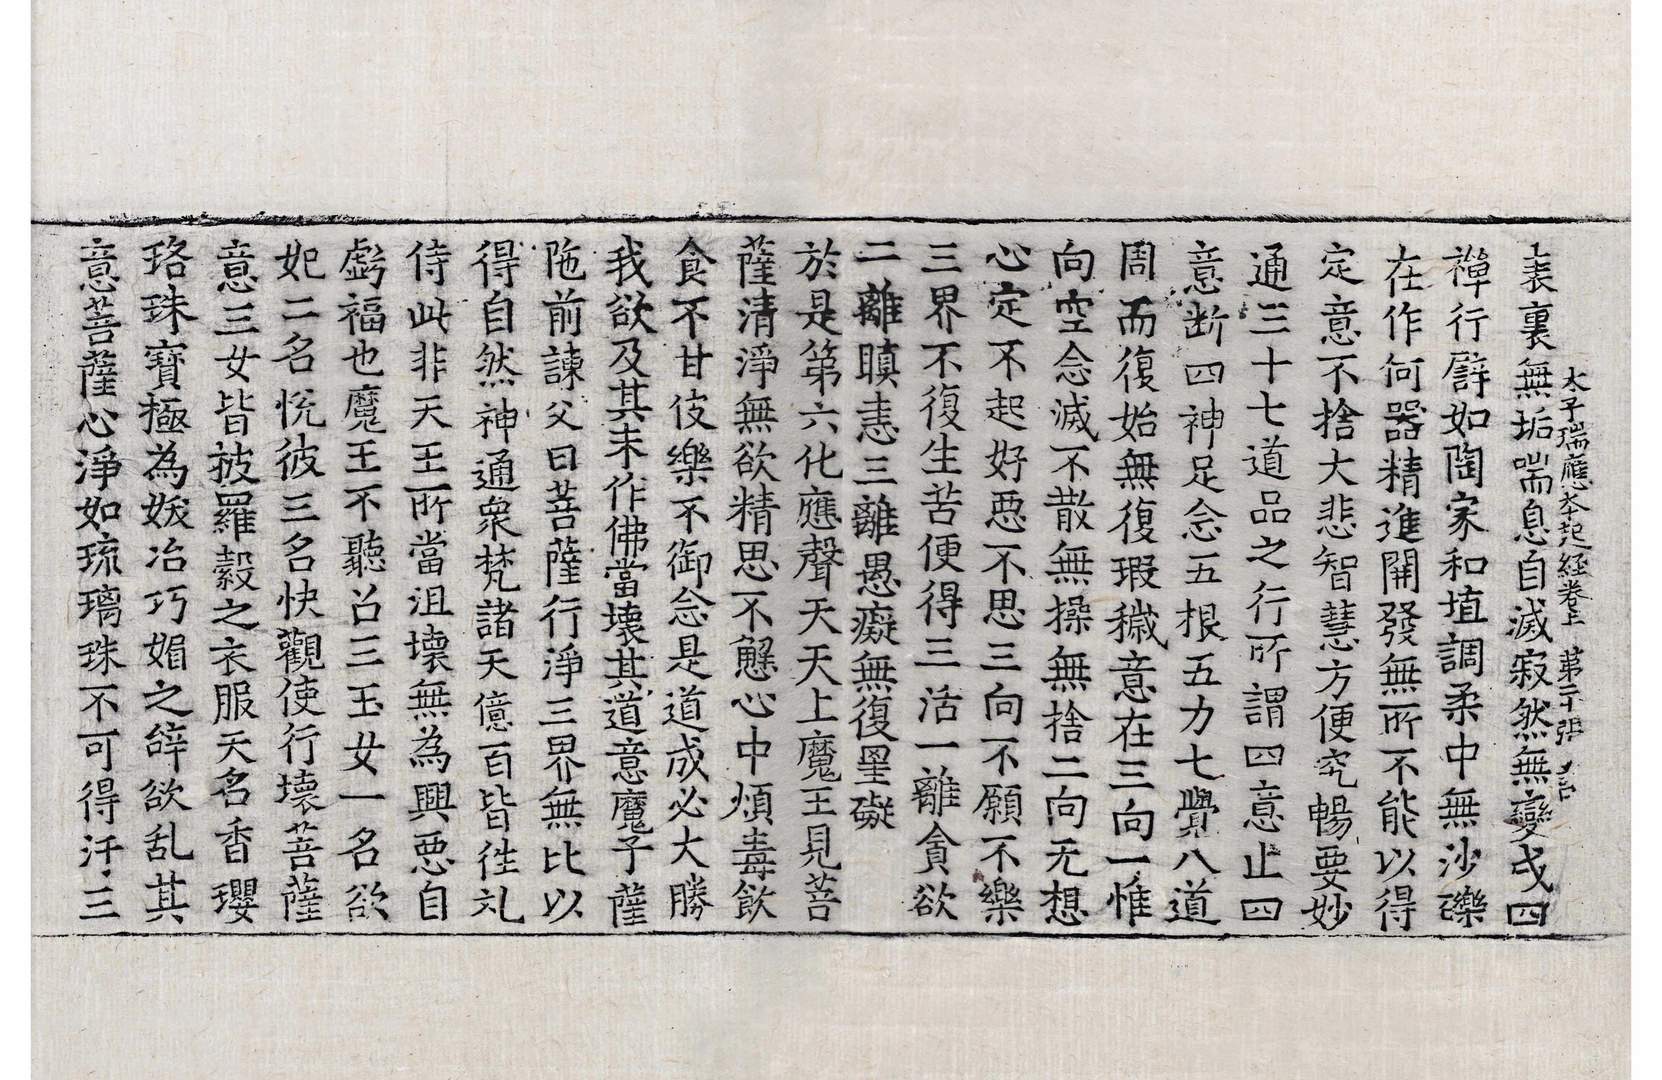 太子瑞應本起經卷上 第二十張 言
表裏無垢喘息自滅寂然無變成四
禪行譬如陶家和埴調柔中無沙礫
在作何器精進開發無所不能以得
定意不捨大悲智慧方便究暢要妙
通三十七道品之行所謂四意止四
意断四神足念五根五力七覺八道
周而復始無復瑕穢意在三向一惟
向空念滅不散無操無捨二向无想
心定不起好惡不思三向不願不樂
三界不復生苦便得三活一離貪欲
二離瞋恚三離愚癡無復罣礙
於是第六化應聲天天上魔王見菩
薩清淨無欲精思不懈心中煩毒飲
食不甘伎樂不御念是道成必大勝
我欲及其未作佛當壞其道意魔子薩
陁前諫父曰菩薩行淨三界無比以
得自然神通衆梵諸天億百皆徃礼
侍此非天王所當沮壞無為興惡自
虧福也魔王不聽召三玉女一名欲
妃二名悅彼三名快觀使行壞菩薩
意三女皆披羅縠之衣服天名香瓔
珞珠寶極為妖冶巧媚之辤欲乱其
意菩薩心淨如琉璃珠不可得汙三